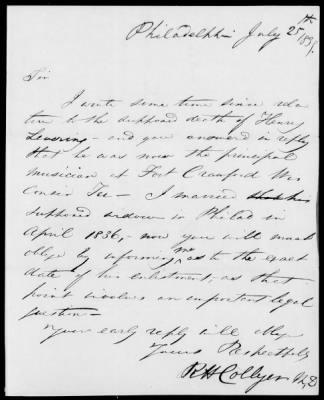 Philadelphia July 25th 1839.
Sir
I write some time since rela
tive to the supposed death of Henry
Levering – and you answered in reply
that he was now the principal
musician at Fort Crawford Wis
consin Ter – I married
supposed widow in Philad in
April 1836, – now you will much
oblige by informing me as to the exact
date of his enlistment, as that
point involves an important legal
question –
Your early reply will oblige
Yours Respectfully
RH Collyer M,D